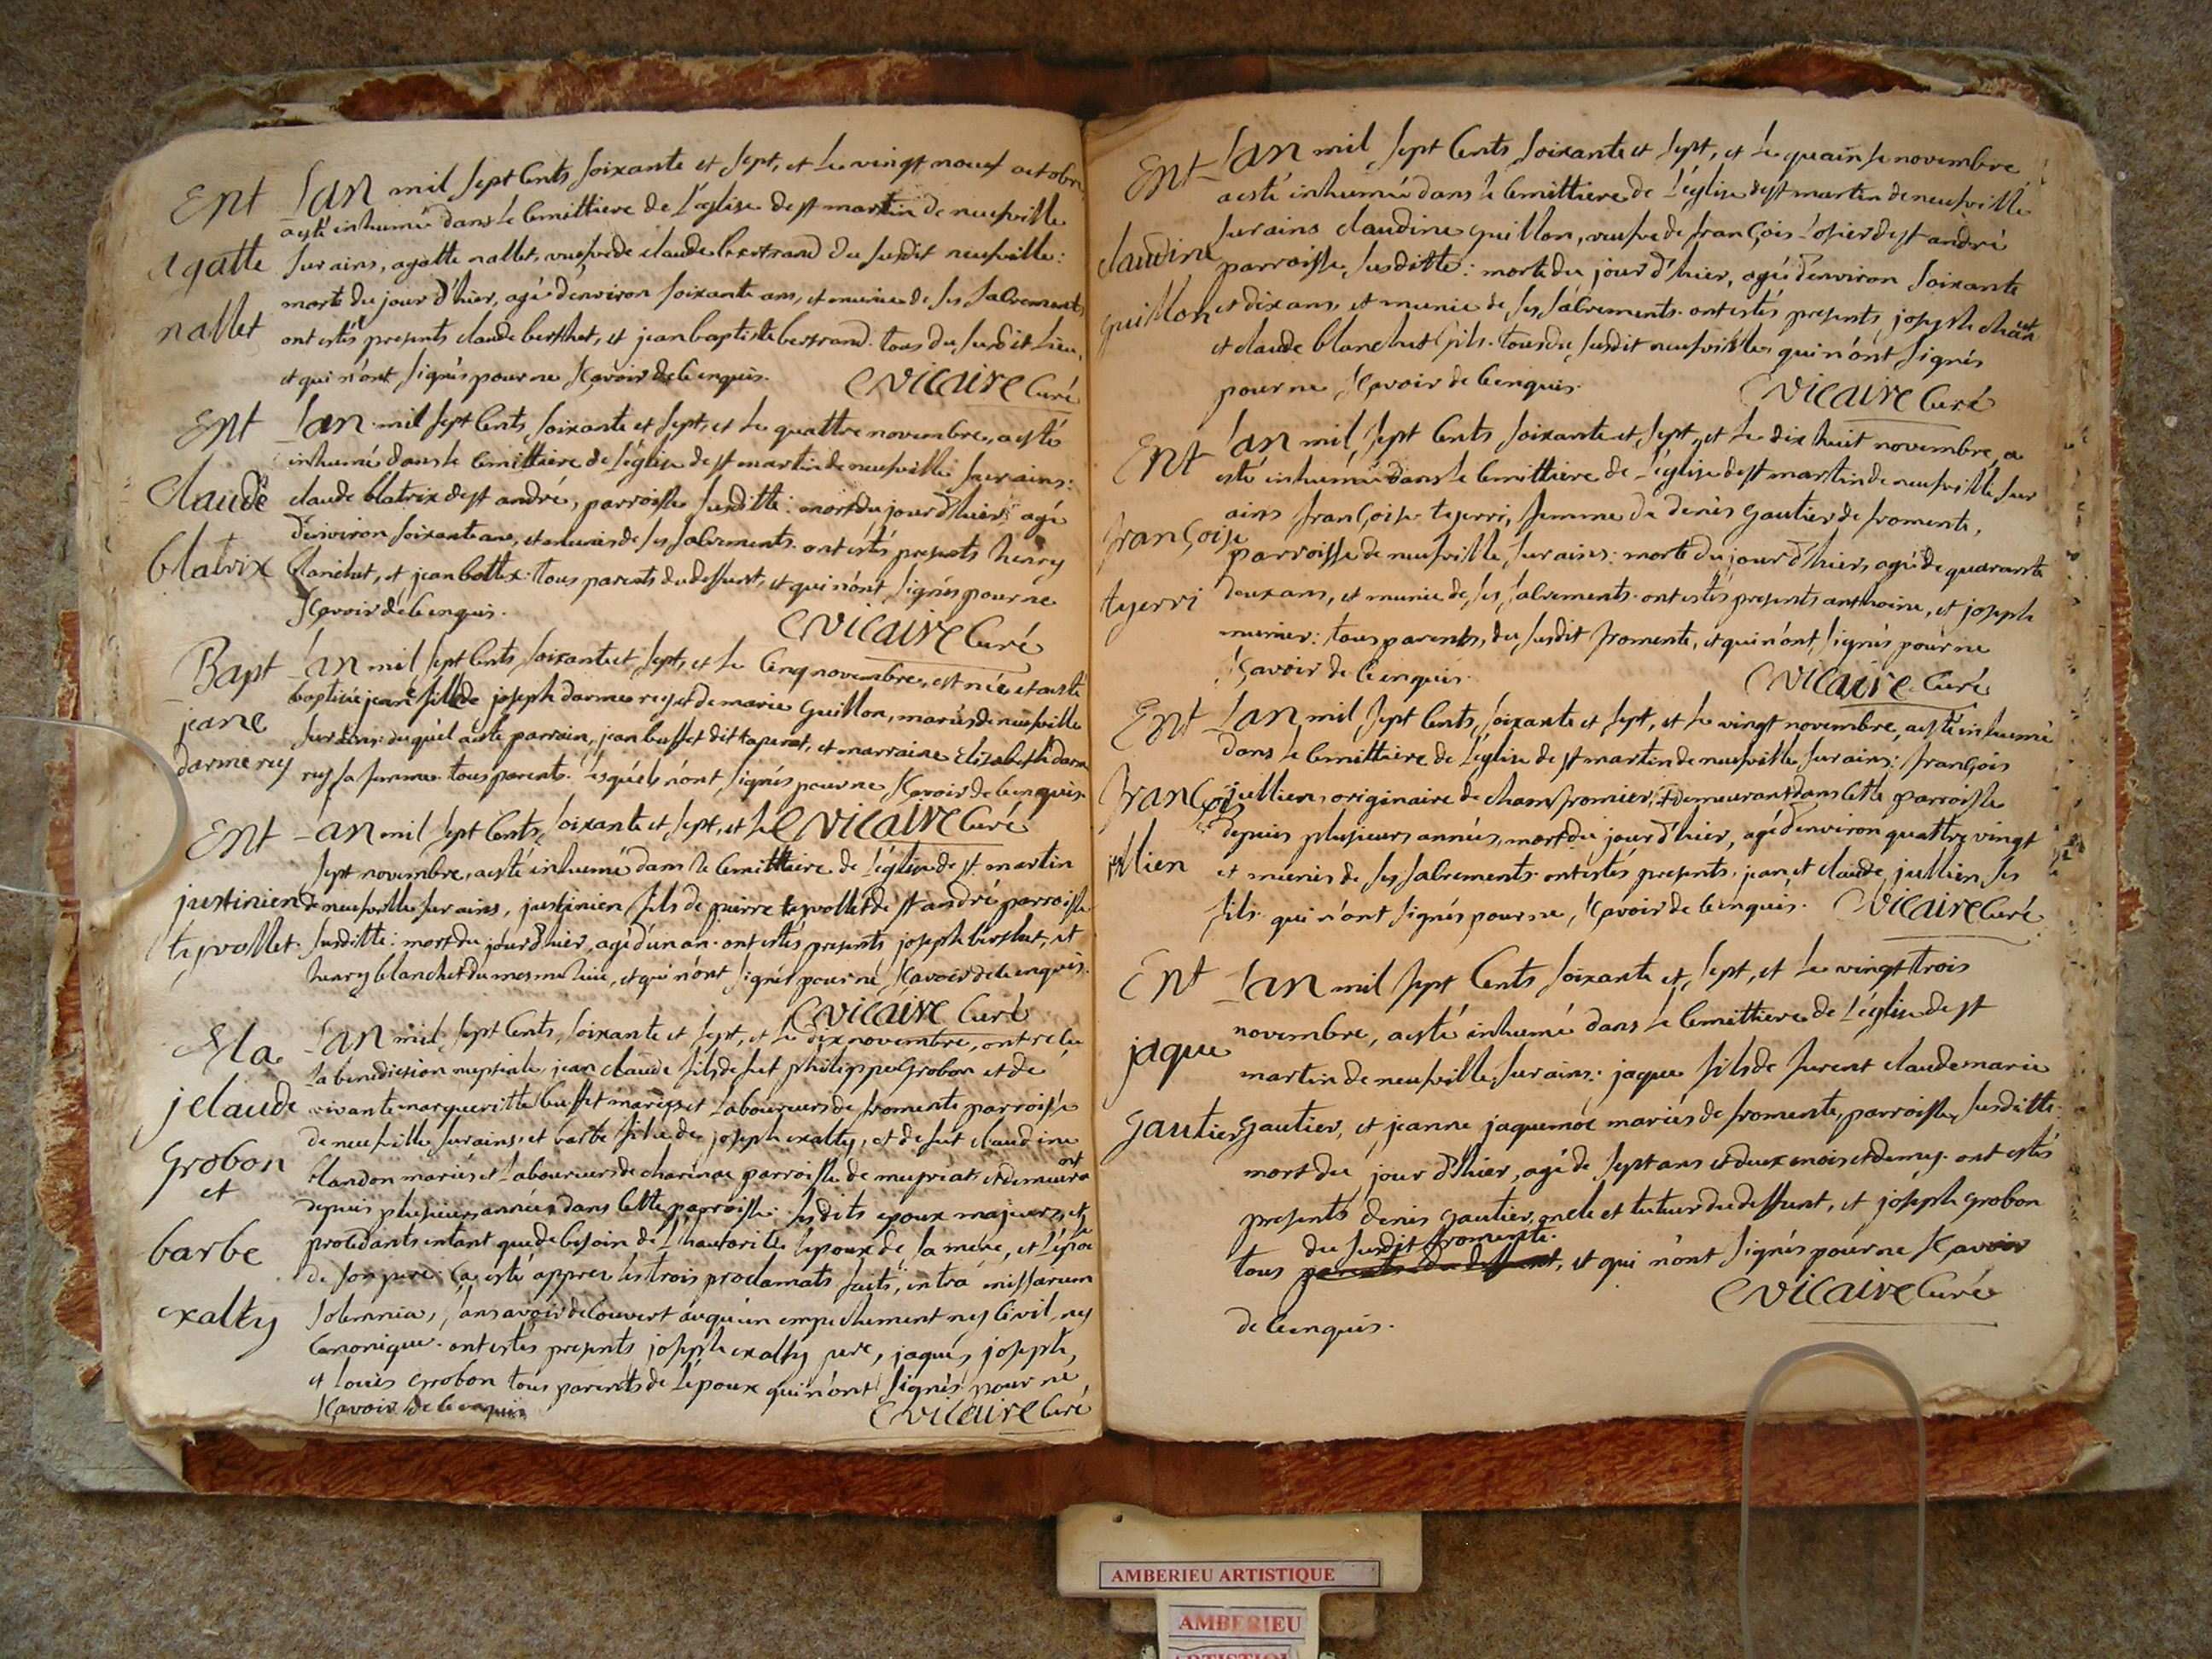 Ent
agatte
nallet
Lan mil sept cents soixante et sept, et le vingt neuf octobre
a esté inhumé dans le cemittiere de l'eglise de st martin de neufville
sur ains, agatte nallet, veufve de claude bertrand du susdit neufville:
morte du jour d'hier, agé d'environ soixante ans, et munie de ses sacrements
ont estés presents claude berthet, et jean baptiste bertrand. tous du susdit lieu,
et qui n'ont signés pour ne scavoir de ce enquis.
Vicaire Curé
Ent
Claude
blatrix
Lan mil sept cents soixante et sept, et le quattre novembre, a esté
inhumé dans le cemittiere de l'eglise de st martin de neufville sur ains:
claude blatrix de st andré, parroisse susditte: mort du jour d'hier, agé
d'environ soixante ans, et munis de ses sacrements. ont estés presents henry
blanchet, et jean bottex: tous parents du deffunt, et qui n'ont signés pour ne
scavoir de ce enquis.
Vicaire Curé
Bapt
jeane
darmerey
Lan mil sept cents soixante et sept, et le cinq novembre, est née et a esté
baptisée jeane fille de joseph darmerey et de marie guillon, mariés de neufville
sur ains: duquel a esté parrain, jean buffet dit et marraine Elizabeth darme
rey sa femme. tous parents. lesquels n'ont signés pour ne scavoir de ce enquis.
Vicaire Curé
Ent
justinien
teyvollet
Lan mil sept cents soixante et sept, et le
sept novembre, a esté inhumé dans le cemittiere de l'eglise de st martin
de neufville sur ains, justinien fils de pierre teyvollet de st andré parroisse
susditte: mort du jour d'hier, agé d'un an. ont estés presents joseph berthet, et
henry blanchet du mesme lieu, et qui n'ont signés pour ne scavoir de ce enquis.
Vicaire Curé
Ma
j claude
Grobon
et
barbe
exalty
Lan mil sept cents soixante et sept, et le dix novembre, ont recu
la benediction nuptiale, jean claude fils de fut philippe Grobon et de
vivante margueritte buffet mariés et laboureurs de fromente parroisse
de neufville sur ains, et barbe fille de joseph exalty, et de fut claudine
blandon mariés et laboureurs de charinae parroisse de meyriat et demeurant
depuis plusieurs années dans cette parroisse. lesdits epoux majeurs, et
procedants entant que de besoin de l'hautorité lepoux de sa mére, et l'epouse
de son pere: ça esté apprez les trois proclamats faits, intra missarum
solemnia, sans avoir decouvert auqu'un empechement ny civil, ny
canonique. ont estes presents joseph exalty pere, jaques, joseph,
et louis Grobon tous parents de l'époux qui n'ont signés pour ne
scavoir de ce enquis
Vicaire Curé
Ent
claudine
guillon
Lan mil sept cents soixante et sept, et le quainse novembre
a esté inhumée dans le cemittiere de l'église de st martin de neufville
sur ains claudine guillon, veufve de françois losier de st andré
parroisse susditte: morte du jour d'hier, agée d'environ soixante
et dix ans, et munie de ses sacrements. ont estés presents joseph
et claude blanchet fils. tous du susdit neufville, qui n'ont signés
pour ne scavoir de ce enquis.
Vicaire Curé
Ent
françoise
teyerri
Lan mil sept cents soixante et sept, et le dix huit novembre, a
esté inhumée dans le cemittiere de l'église de st martin de neufville sur
ains françoise teyerri, femme de denis gautier de fromente,
parroisse de neufville sur ains: morte du jour d'hier, agé de quarante
deux ans, et munie de ses sacrements. ont estés presents anthoine, et joseph
munier: tous parents, du susdit fromente, et qui n'ont signés pour ne
scavoir de ce enquis.
Vicaire Curé
Ent
françois
jullien
Lan mil sept cents soixante et sept, et le vingt novembre, a esté inhumé
dans le cemittiere de l'église de st martin de neufville sur ains: françois
jullien, originaire de champfromier, et demeurant dans cette parroisse
depuis plusieurs années, mort du jour d'hier, agé d'environ quattre vingt
et munis de ses sacrements. ont estés presents, jean et claude jullien, ses
fils. qui n'ont signés pour ne scavoir de ce enquis.
Vicaire Curé
Ent
jaque
gautier
Lan mil sept cents soixante et sept, et le vingt trois
novembre, a esté inhumé dans le cemittiere de l'église de st
martin de neufville sur ains: jaque fils de furent claude marie
gautier, et jeanne jaquemoe mariés de fromente, parroisse susditte.
mort du jour d'hier, agé de sept ans et deux mois et demy. ont estés
presents denis gautier, oncle et tuteur du deffunt, et joseph grobon
du susdit fromente.
tous parents du deffunt, et qui n'ont signés pour ne scavoir
de ce enquis.
Vicaire Curé
AMBERIEU ARTISTIQUE
AMBERIEU
ARTISTIQUE